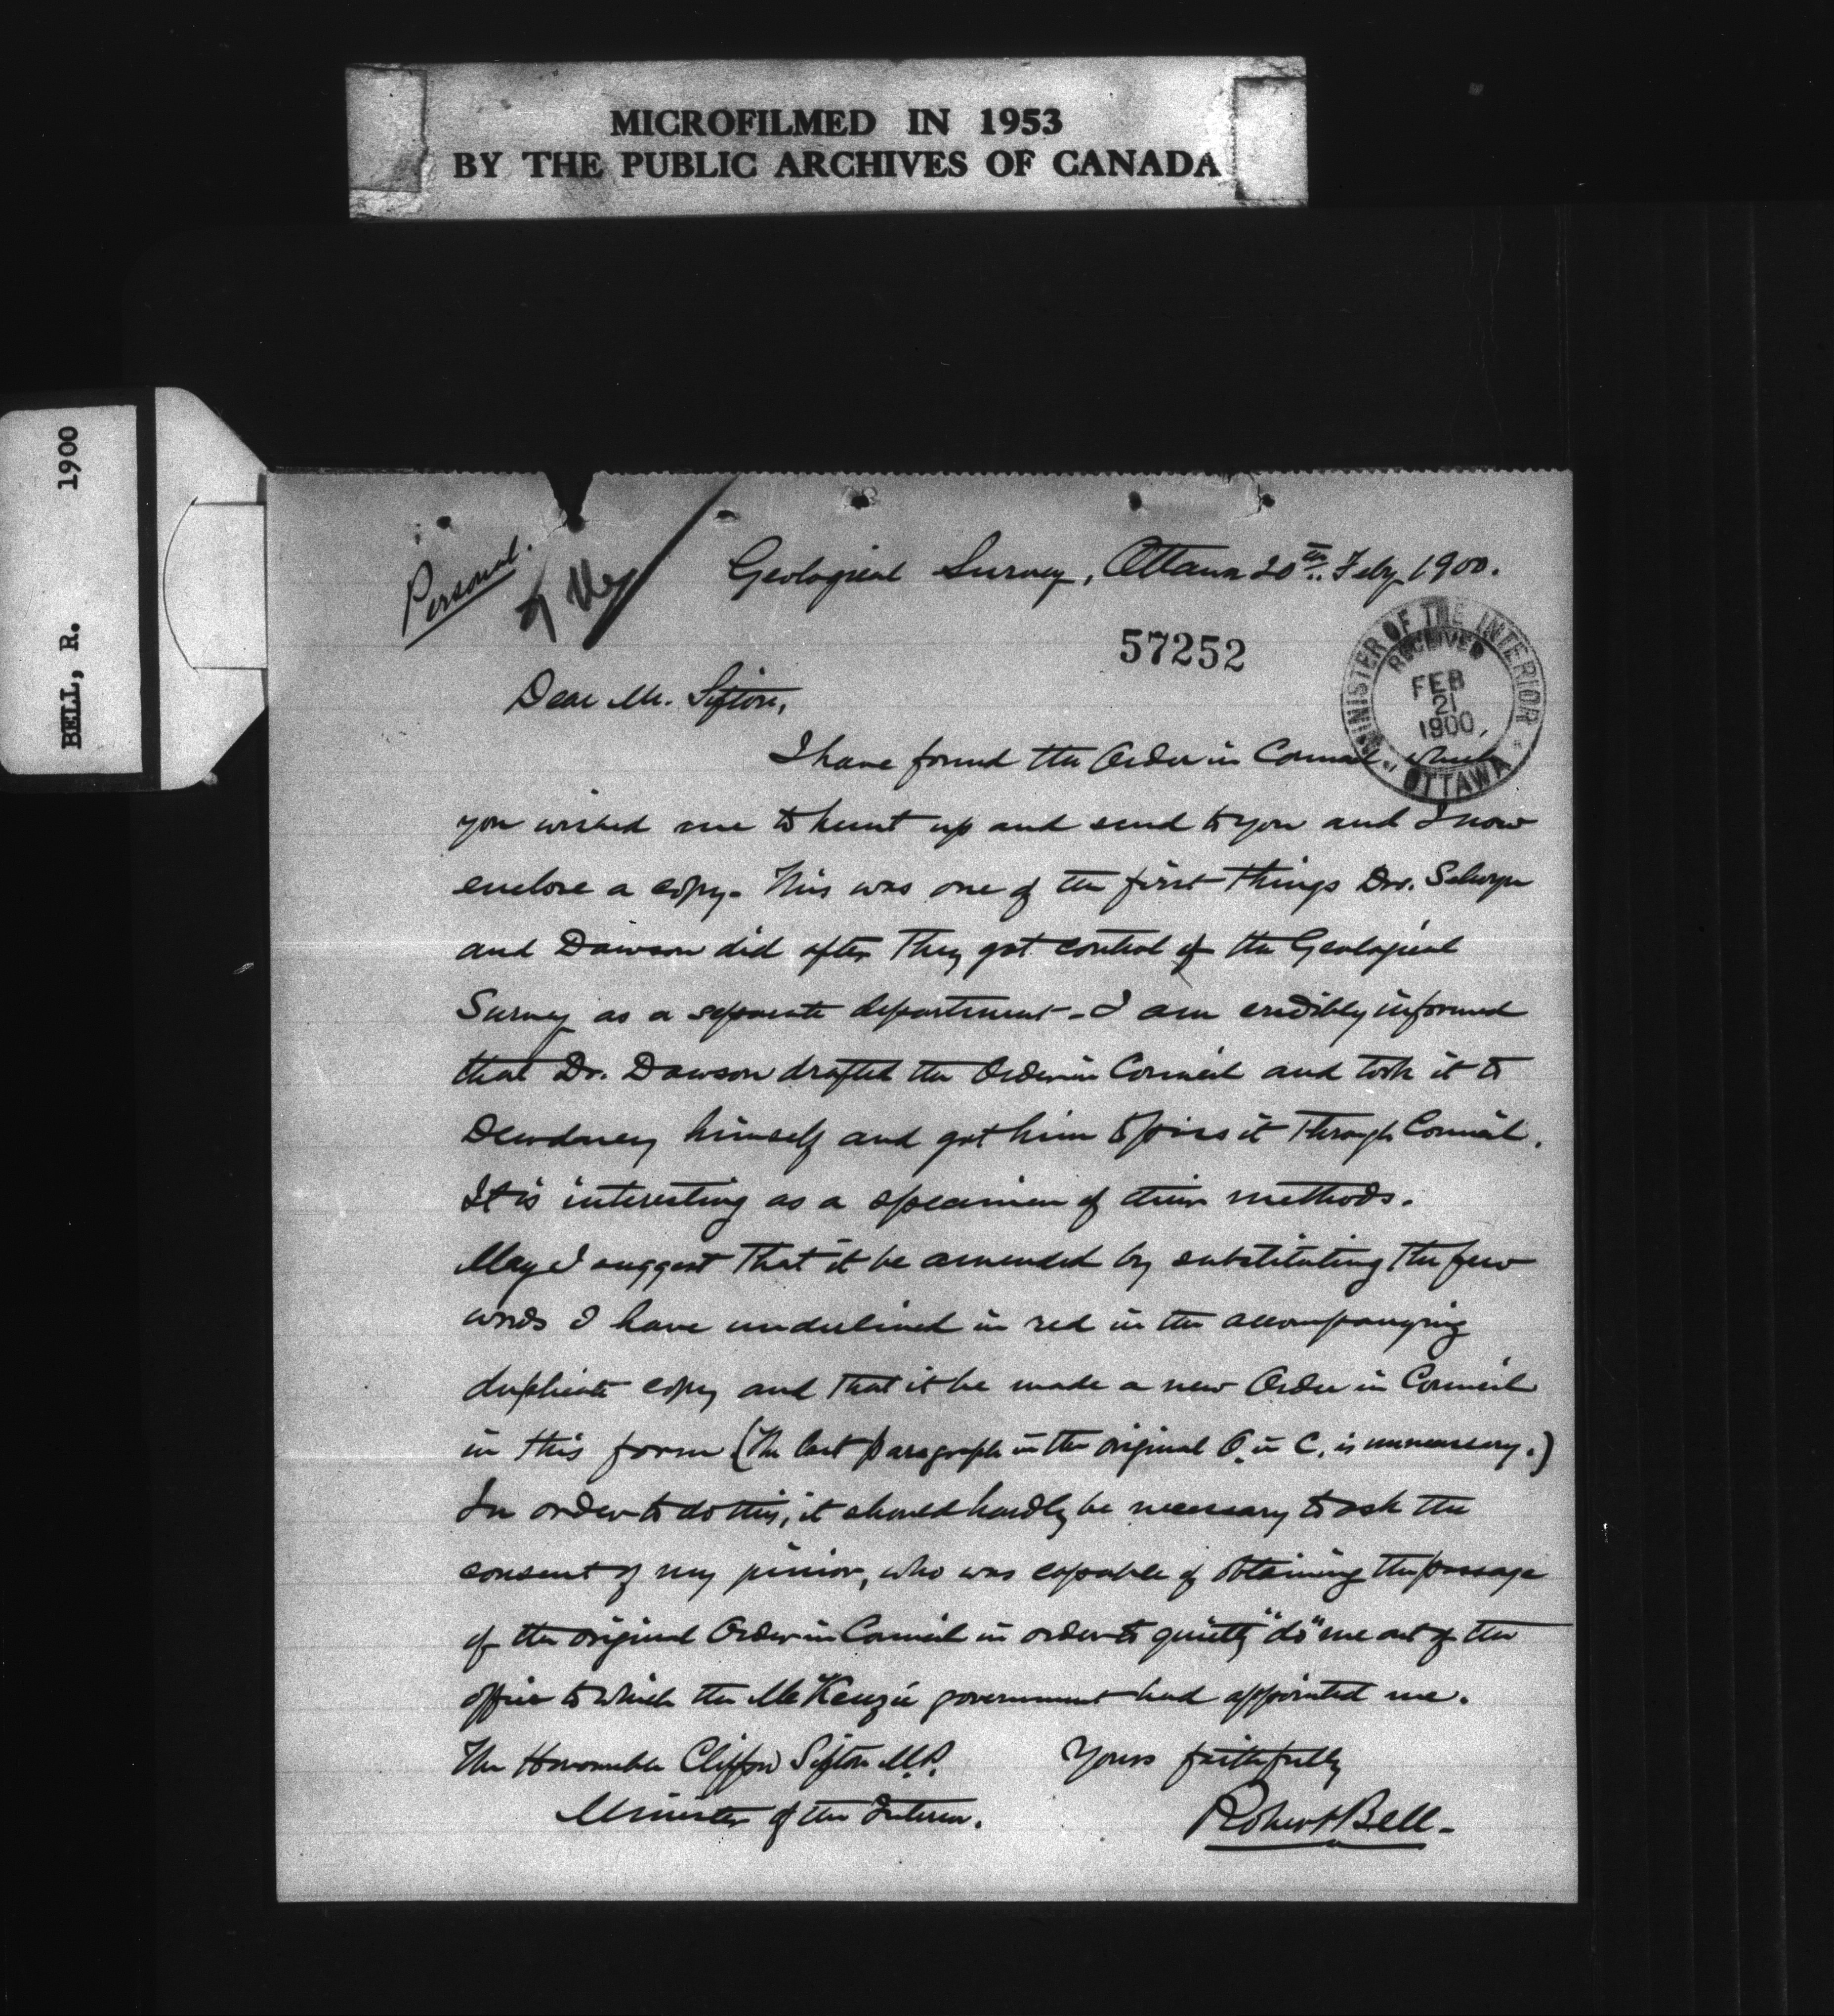 MICROFILMED IN 1953
BY THE PUBLIC ARCHIVES OF CANADA
BELL, R. 1900
Personal.
Geological Survey, Ottawa 20th. Feby. 1900.
57252
MINISTER OF THE INTERIOR
RECEIVED
FEB
21
1900
OTTAWA
Dear Mr. Sifton,
I have found the Order in Council, which
you wished me to hunt up and send to you and I now
enclose a copy. This was one of the first things Drs. Selwyn
and Dawson did after they got control of the Geological
Survey as a separate department - I am credibly informed
that Dr. Dawson drafted the Order in Council and took it to
Dewdney himself and got him to pass it through Council.
It is interesting as a specimen of their methods.
May I suggest that it be amended by substituting the few
words I have underlined in red in the accompanying
duplicate copy and that it be made a new Order in Council
in this form (The last paragraph in the original O. in C. is unnecessary.)
In order to do this, it should hardly be necessary to ask the
consent of my junior, who was capable of obtaining the passage
of the original Order in Council in order to quietly "do" me out of the
office to which the McKenzie government had appointed me.
The Honourable Clifford Sifton M.P. Yours faithfully
Minister of the Interior. Robert Bell-